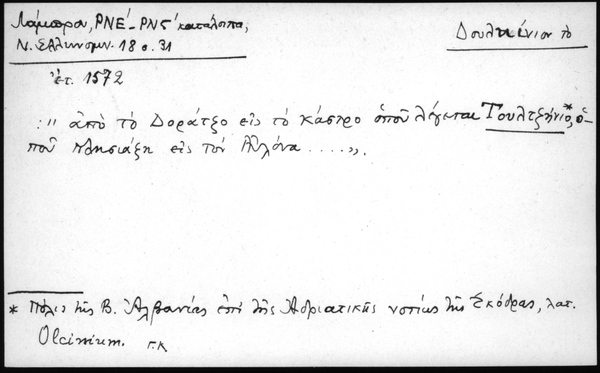 Λάμπρου, ΡΝΕ´-ΡΝϚ´ κατάλοιπα,
Ν. Ἑλληνομν. 18 σ. 31
Δουλκίνιον τὸ
ἔτ. 1572
:„ ἀπὸ τὸ Δοράτζο εἰς τὸ κάστρο ὁποῦ λέγεται Τουλτζήνιο,* ὁ-
ποῦ πλησιάζη εἰς τὸν Αὐλόνα .....„.
* Πόλις τῆς Β. Ἀλβανίας ἐπὶ τῆς Ἀδριατικῆς νοτίως τῆς Σκόδρας, λατ.
Olcinium. Γ.Κ